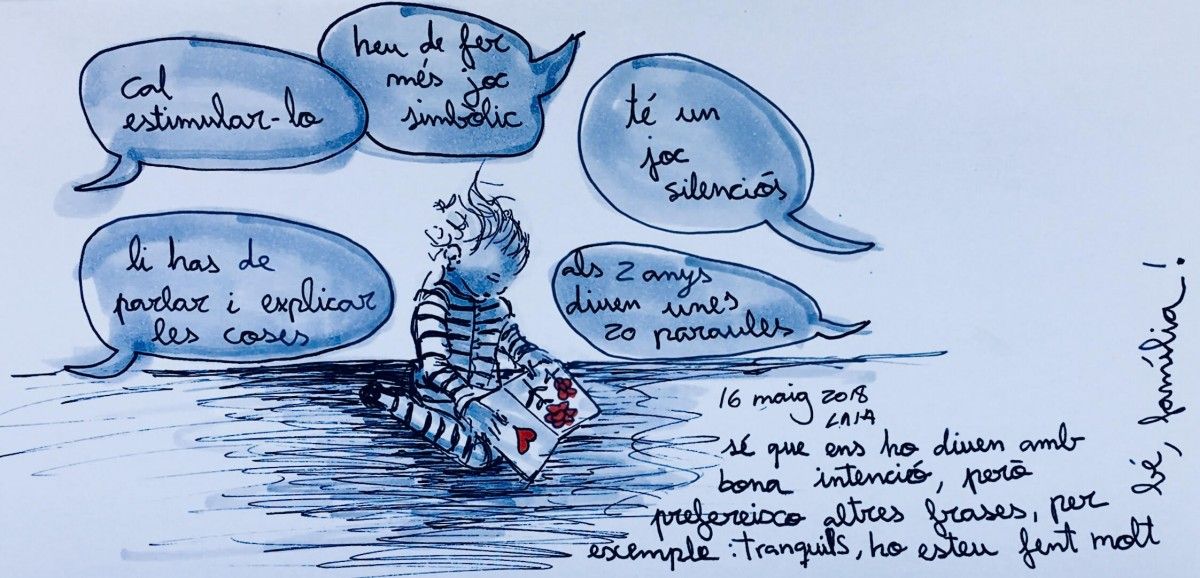 cal
estimular-lo
heu de fer
més joc
simbòlic
té un
joc
silenciós
li has de
parlar i explicar
les coses
als 2 anys
diuen unes
20 paraules
16 maig 2018
LAIA
sé que ens ho diuen amb
bona intenció, però
prefereixo altres frases, per
exemple: tranquils, ho esteu fent molt
bé, família!